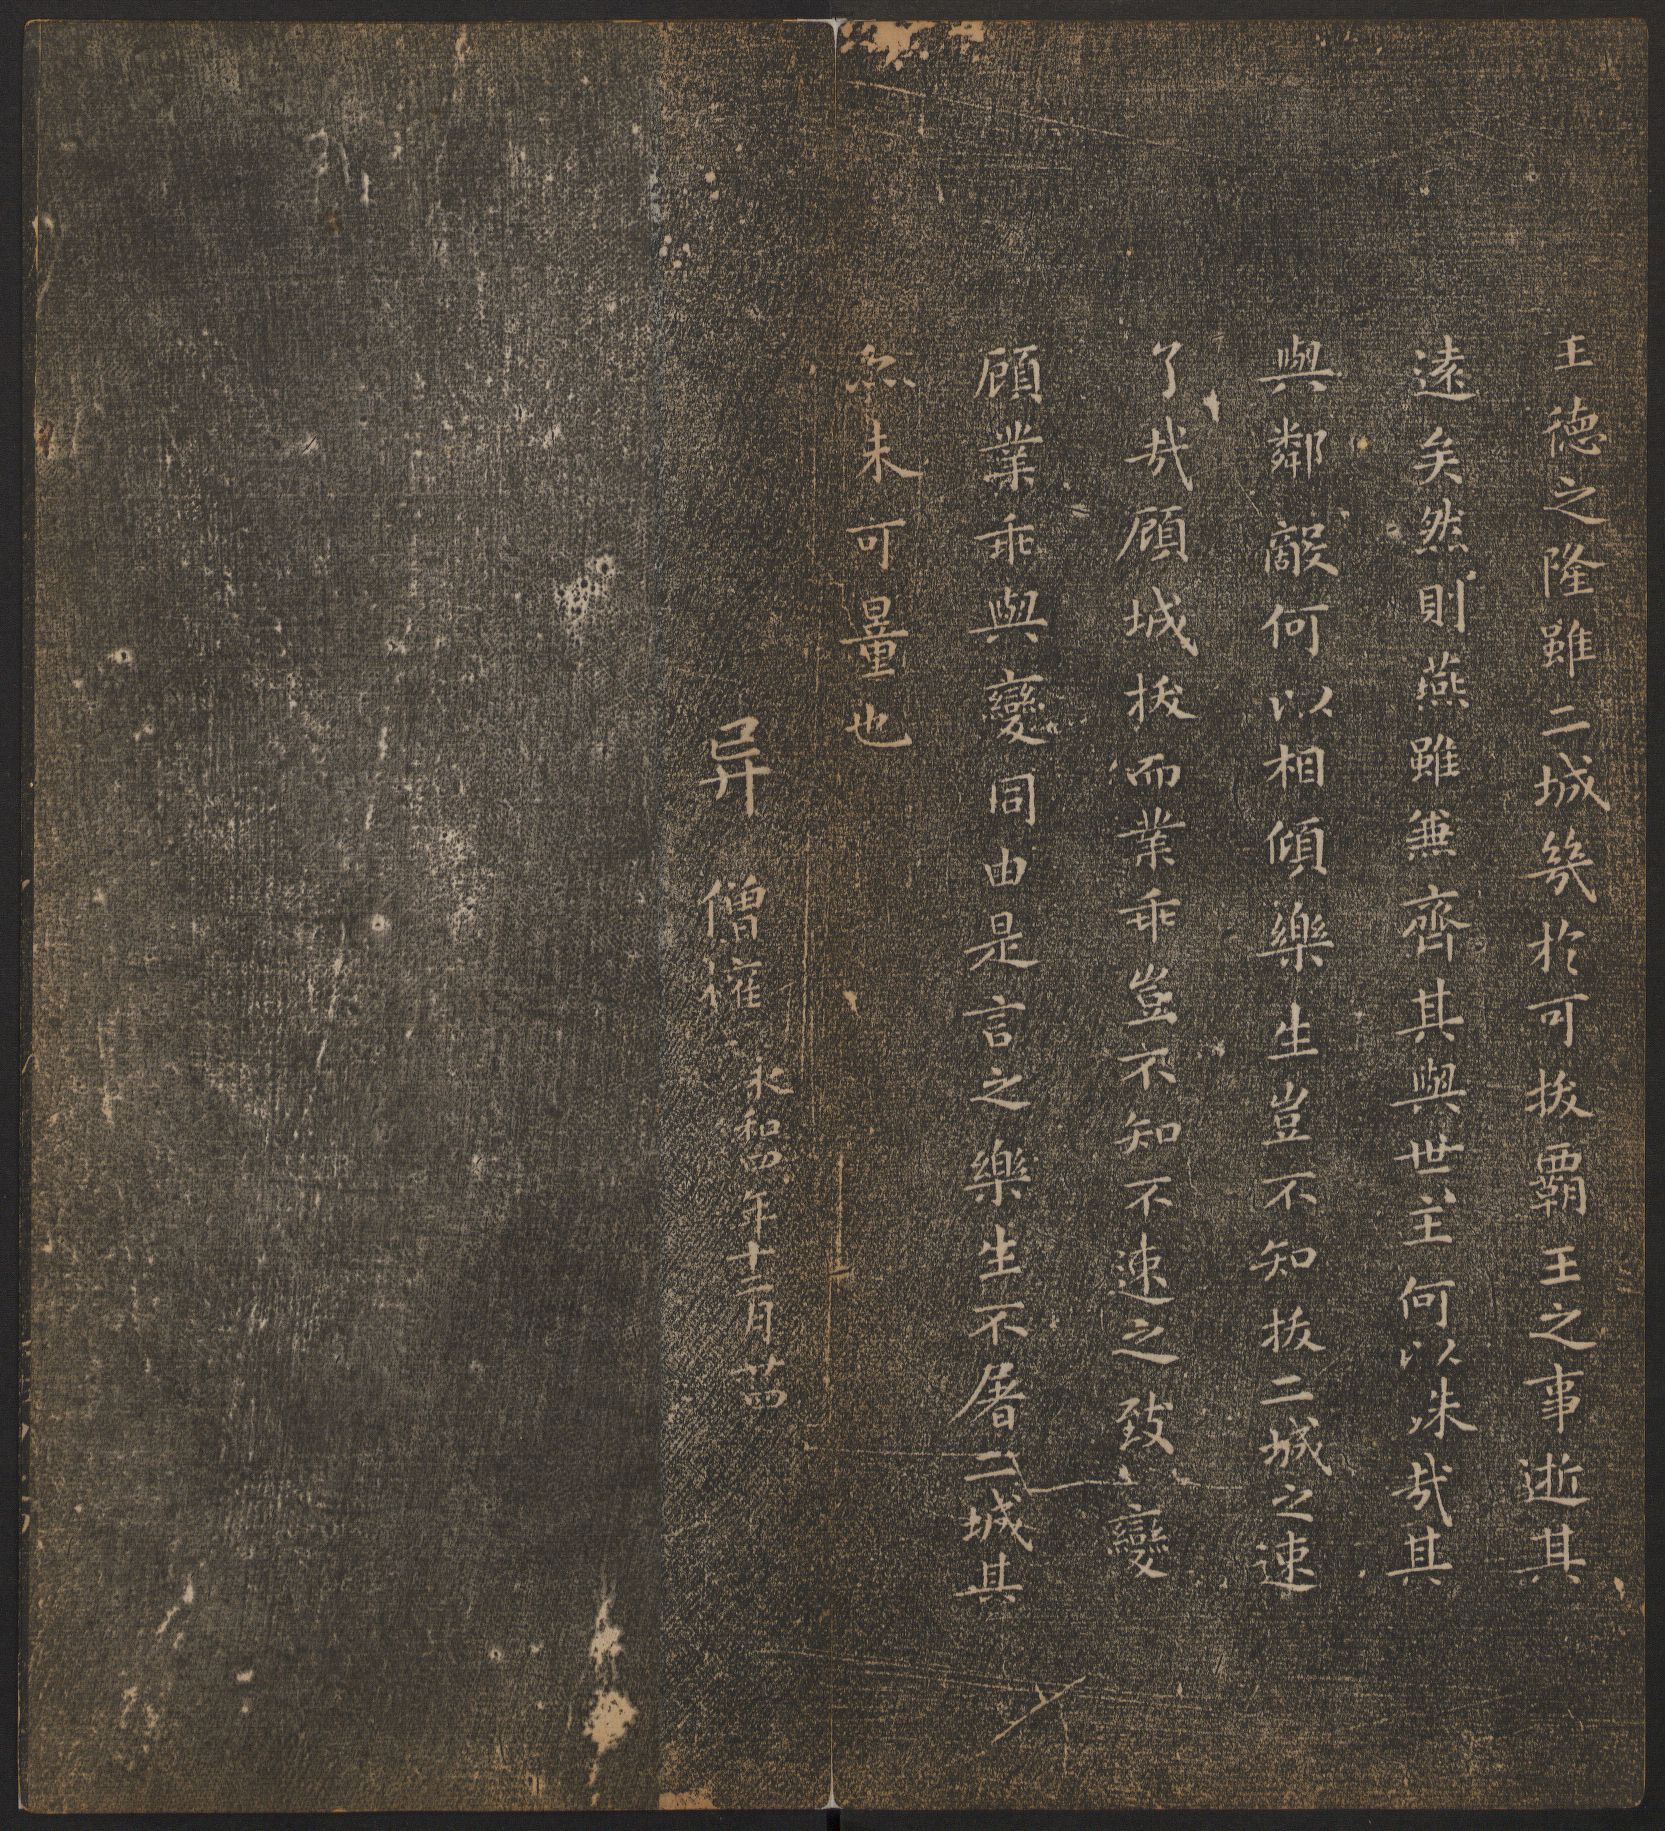 王德之隆雖二城幾於可拔霸王之事逝其
遠矣然則燕雖兼齊其與世主何以殊哉其
與鄰敵何以相傾樂生豈不知拔二城之速
了哉顧城拔而業乖豈不知不速之致變
顧業乖與變同由是言之樂生不屠二城其
亦未可量也
异 僧權
永和四年十二月廿四